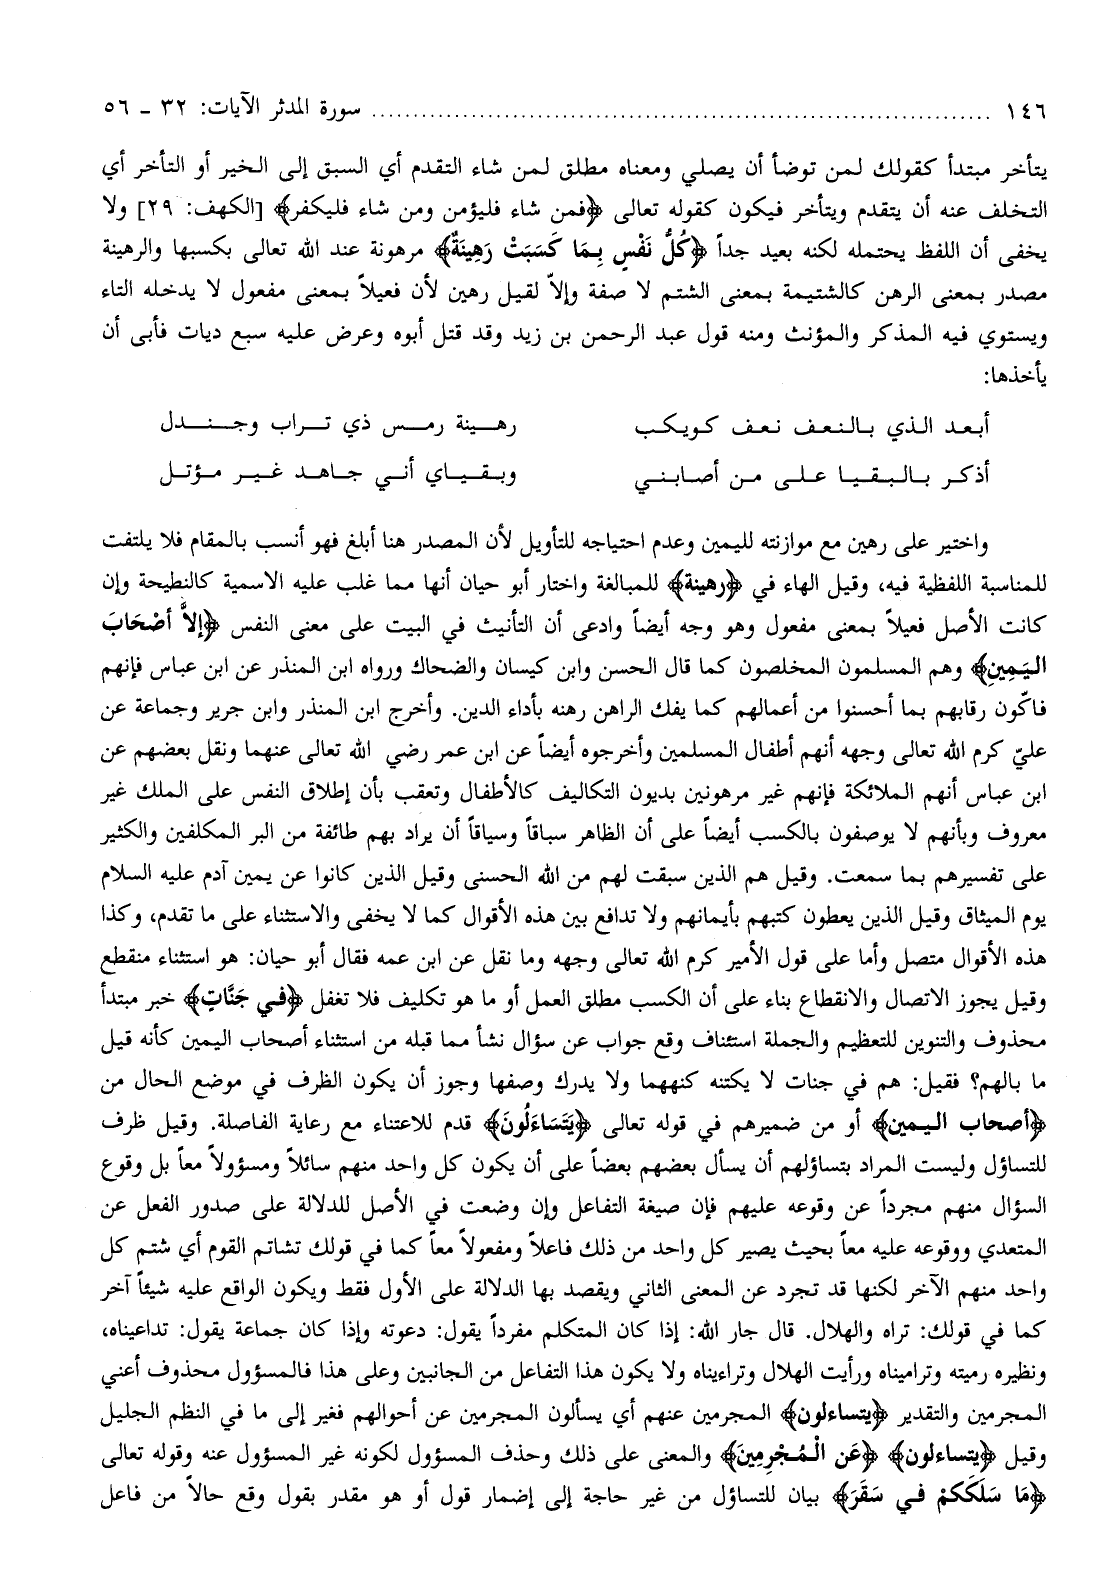 ١٤٦ ........ سورة المدثر الآيات: ٣٢ ـ ٥٦
يتأخر مبتدأ كقولك لمن توضأ أن يصلي ومعناه مطلق لمن شاء التقدم أي السبق إلى الخير أو التأخر أي
التخلف عنه أن يتقدم ويتأخر فيكون كقوله تعالى ﴿فمن شاء فليؤمن ومن شاء فليكفر﴾ [الكهف: ٢٩] ولا
يخفى أن اللفظ يحتمله لكنه بعيد جداً ﴿كُلُّ نَفْسٍ بِمَا كَسَبَتْ رَهِينَةٌ﴾ مرهونة عند الله تعالى بكسبها والرهينة
مصدر بمعنى الرهن كالشتيمة بمعنى الشتم لا صفة وإلاّ لقيل رهين لأن فعيلاً بمعنى مفعول لا يدخله التاء
ويستوي فيه المذكر والمؤنث ومنه قول عبد الرحمن بن زيد وقد قتل أبوه وعرض عليه سبع ديات فأبى أن
يأخذها:
أبعد الذي بالنعف نعف كويكب رهينة رمس ذي تراب وجندل
أذكر بالبقيا على من أصابني وبقياي أني جاهد غير مؤتل
واختير على رهين مع موازنته لليمين وعدم احتياجه للتأويل لأن المصدر هنا أبلغ فهو أنسب بالمقام فلا يلتفت
للمناسبة اللفظية فيه، وقيل الهاء في ﴿رهينة﴾ للمبالغة واختار أبو حيان أنها مما غلب عليه الاسمية كالنطيحة وإن
كانت الأصل فعيلاً بمعنى مفعول وهو وجه أيضاً وادعى أن التأنيث في البيت على معنى النفس ﴿إلاَّ أصْحَابَ
اليَمِينِ﴾ وهم المسلمون المخلصون كما قال الحسن وابن كيسان والضحاك ورواه ابن المنذر عن ابن عباس فإنهم
فاكّون رقابهم بما أحسنوا من أعمالهم كما يفك الراهن رهنه بأداء الدين. وأخرج ابن المنذر وابن جرير وجماعة عن
عليّ كرم الله تعالى وجهه أنهم أطفال المسلمين وأخرجوه أيضاً عن ابن عمر رضي الله تعالى عنهما ونقل بعضهم عن
ابن عباس أنهم الملائكة فإنهم غير مرهونين بديون التكاليف كالأطفال وتعقب بأن إطلاق النفس على الملك غير
معروف وبأنهم لا يوصفون بالكسب أيضاً على أن الظاهر سباقاً وسياقاً أن يراد بهم طائفة من البر المكلفين والكثير
على تفسيرهم بما سمعت. وقيل هم الذين سبقت لهم من الله الحسنى وقيل الذين كانوا عن يمين آدم عليه السلام
يوم الميثاق وقيل الذين يعطون كتبهم بأيمانهم ولا تدافع بين هذه الأقوال كما لا يخفى والاستثناء على ما تقدم، وكذا
هذه الأقوال متصل وأما على قول الأمير كرم الله تعالى وجهه وما نقل عن ابن عمه فقال أبو حيان: هو استثناء منقطع
وقيل يجوز الاتصال والانقطاع بناء على أن الكسب مطلق العمل أو ما هو تكليف فلا تغفل ﴿في جَنَّاتٍ﴾ خبر مبتدأ
محذوف والتنوين للتعظيم والجملة استئناف وقع جواب عن سؤال نشأ مما قبله من استثناء أصحاب اليمين كأنه قيل
ما بالهم؟ فقيل: هم في جنات لا يكتنه كنههما ولا يدرك وصفها وجوز أن يكون الظرف في موضع الحال من
﴿أصحاب اليمين﴾ أو من ضميرهم في قوله تعالى ﴿يَتَسَاءَلُونَ﴾ قدم للاعتناء مع رعاية الفاصلة. وقيل ظرف
للتساؤل وليست المراد بتساؤلهم أن يسأل بعضهم بعضاً على أن يكون كل واحد منهم سائلاً ومسؤولاً معاً بل وقوع
السؤال منهم مجرداً عن وقوعه عليهم فإن صيغة التفاعل وإن وضعت في الأصل للدلالة على صدور الفعل عن
المتعدي ووقوعه عليه معاً بحيث يصير كل واحد من ذلك فاعلاً ومفعولاً معاً كما في قولك تشاتم القوم أي شتم كل
واحد منهم الآخر لكنها قد تجرد عن المعنى الثاني ويقصد بها الدلالة على الأول فقط ويكون الواقع عليه شيئاً آخر
كما في قولك: تراه والهلال. قال جار الله: إذا كان المتكلم مفرداً يقول: دعوته وإذا كان جماعة يقول: تداعيناه،
ونظيره رميته وتراميناه ورأيت الهلال وتراءيناه ولا يكون هذا التفاعل من الجانبين وعلى هذا فالمسؤول محذوف أعني
المجرمين والتقدير ﴿يتساءلون﴾ المجرمين عنهم أي يسألون المجرمين عن أحوالهم فغير إلى ما في النظم الجليل
وقيل ﴿يتساءلون﴾ ﴿عَنِ الْمُجْرِمِينَ﴾ والمعنى على ذلك وحذف المسؤول لكونه غير المسؤول عنه وقوله تعالى
﴿مَا سَلَكَكمْ في سَقَرَ﴾ بيان للتساؤل من غير حاجة إلى إضمار قول أو هو مقدر بقول وقع حالاً من فاعل